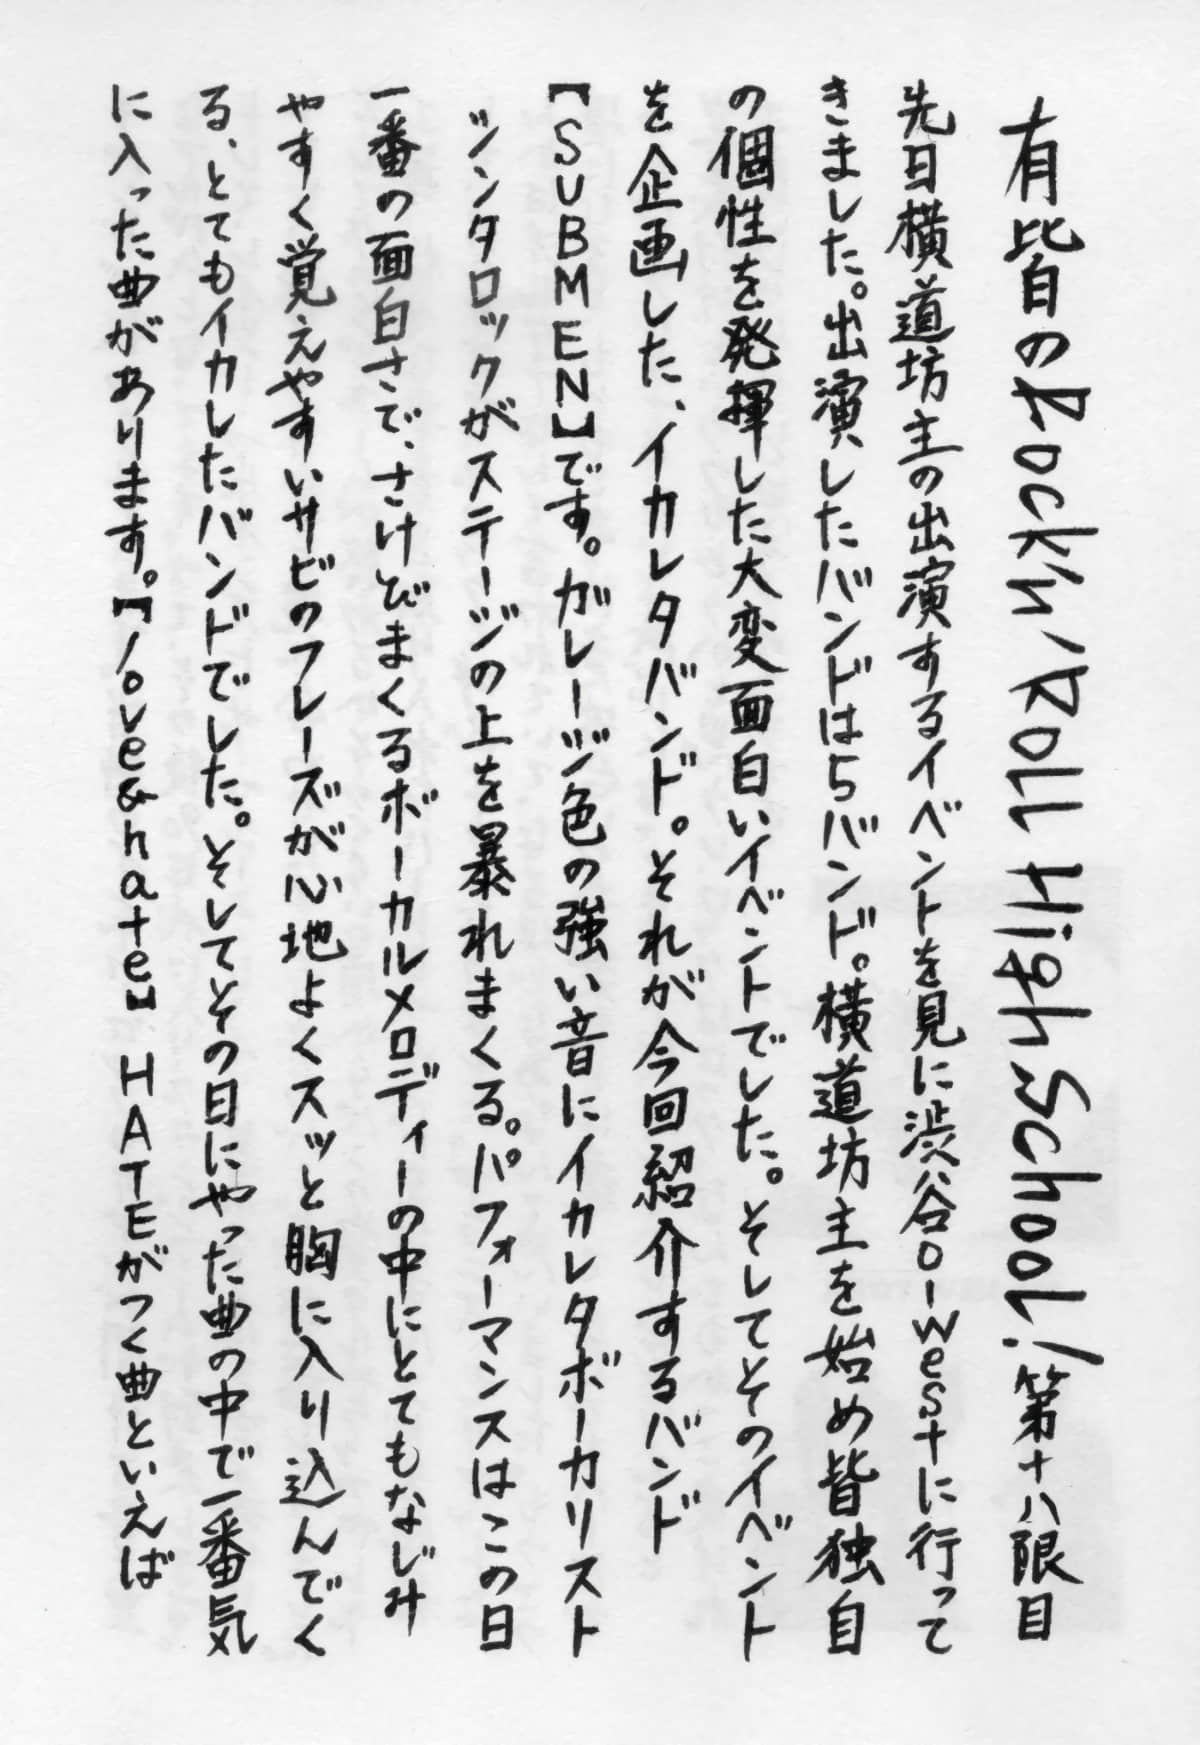 有皆のRock'n'Roll High School! 第十八限目
先日横道坊主の出演するイベントを見に渋谷O-westに行って
きました。出演したバンドは5バンド。横道坊主を始め皆独自
の個性を発揮した大変面白いイベントでした。そしてそのイベント
を企画した、イカレタバンド。それが今回紹介するバンド
【SUBMEN】です。ガレージ色の強い音にイカレタボーカリスト
シンタロックがステージの上を暴れまくる。パフォーマンスはこの日
一番の面白さで、さけびまくるボーカルメロディーの中にとてもなじみ
やすく覚えやすいサビのフレーズが心地よくスッと胸に入り込んでく
る、とてもイカしたバンドでした。そしてその日にやった曲の中で一番気
に入った曲があります。【love&hate】HATEがつく曲といえば